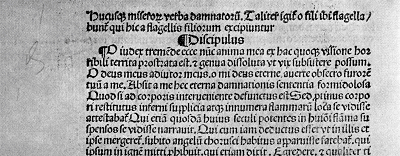 Hucusq̃ miseroꝝ verba damnatorũ. Taliter igit̃ o fili ibi flagella/
hunt̃ qui hic a flagellis filiorum excipiuntur
¶Discipulus
O iudex tremẽde ecce nũc anima mea ex hac quoqꝫ visione hor
ribili territa prostrata est. ⁊ genua dissoluta vt vix subsistere possum.
O deus meus adiutor meus. o mi deus eterne. auerte obsecro furorẽ
tuũ a me. Absit a me hec eterna damnationis sententia formidolosa
Quod si ad corporis interueniente defunctus est Sed, pͥmus corpo
ri restitutus inferni suplicia atqꝫ innumera flammarũ loca se vidisse
attestabat̃. Qui etiã quosdã huius seculi potentes in huiꝰmõi flãma su
spensos se vidisse narrauit. Qui cum iam ductus esset vt in illis et
ipse mergeret̃. subito angelũ chorusci habitus apparuisse fatebat̃. qui
ipsum in ignẽ mitti phibuit. cui etiam dixit. Egredere. ⁊ qualiter ti